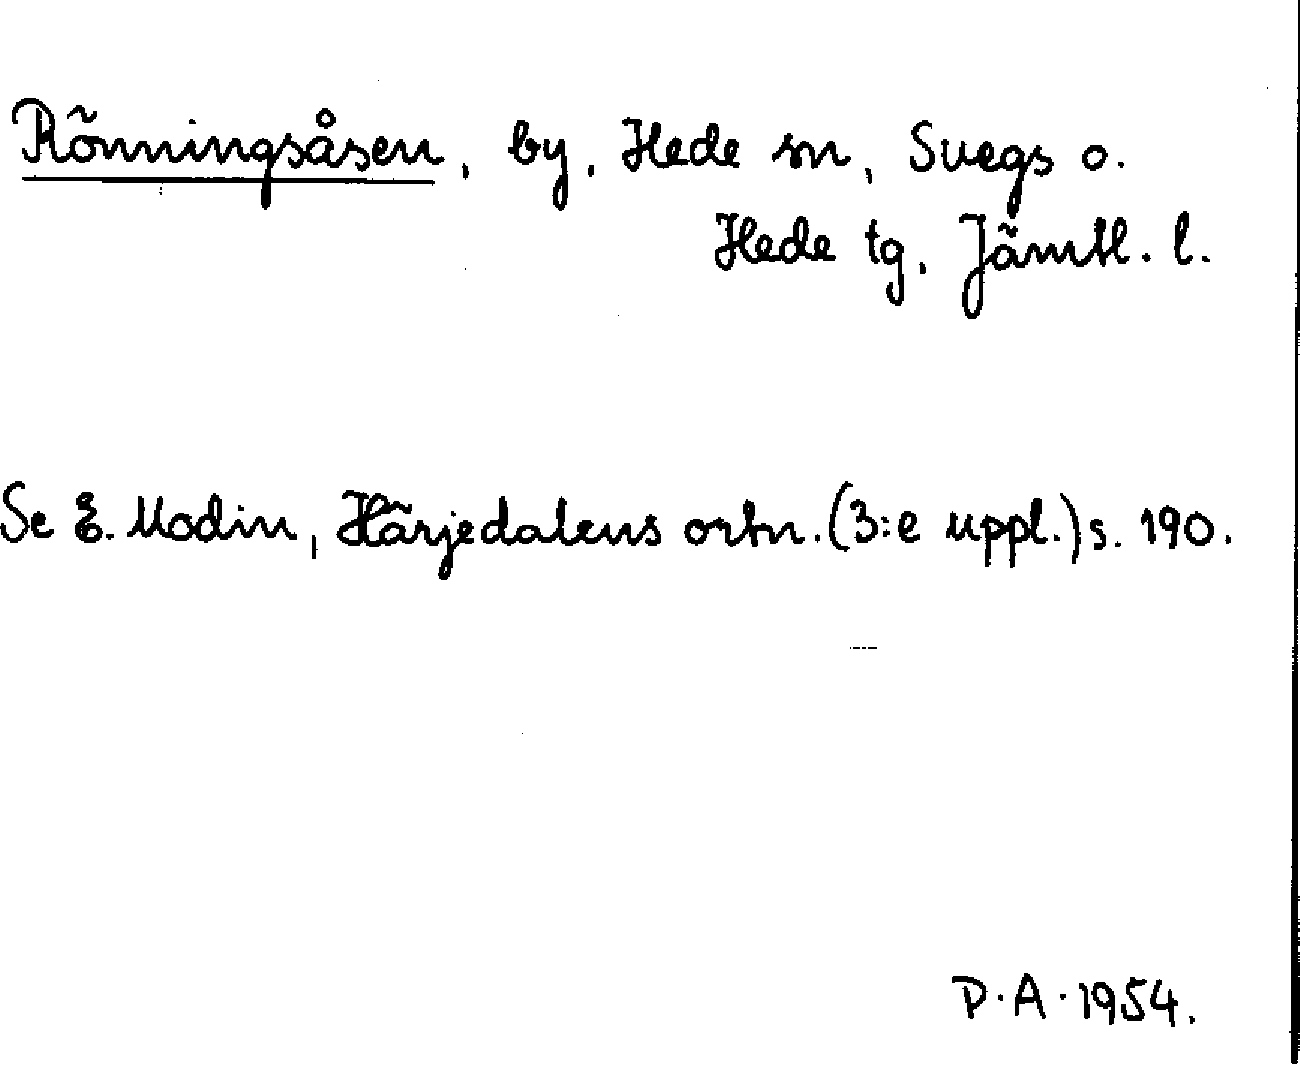 Rönningsåsen, by, Hede sn, Svegs o.
Hede tg, Jämtl. l.
Se E. Modin, Härjedalens ortn. (3:e uppl.) s. 190.
P. A. 1954.